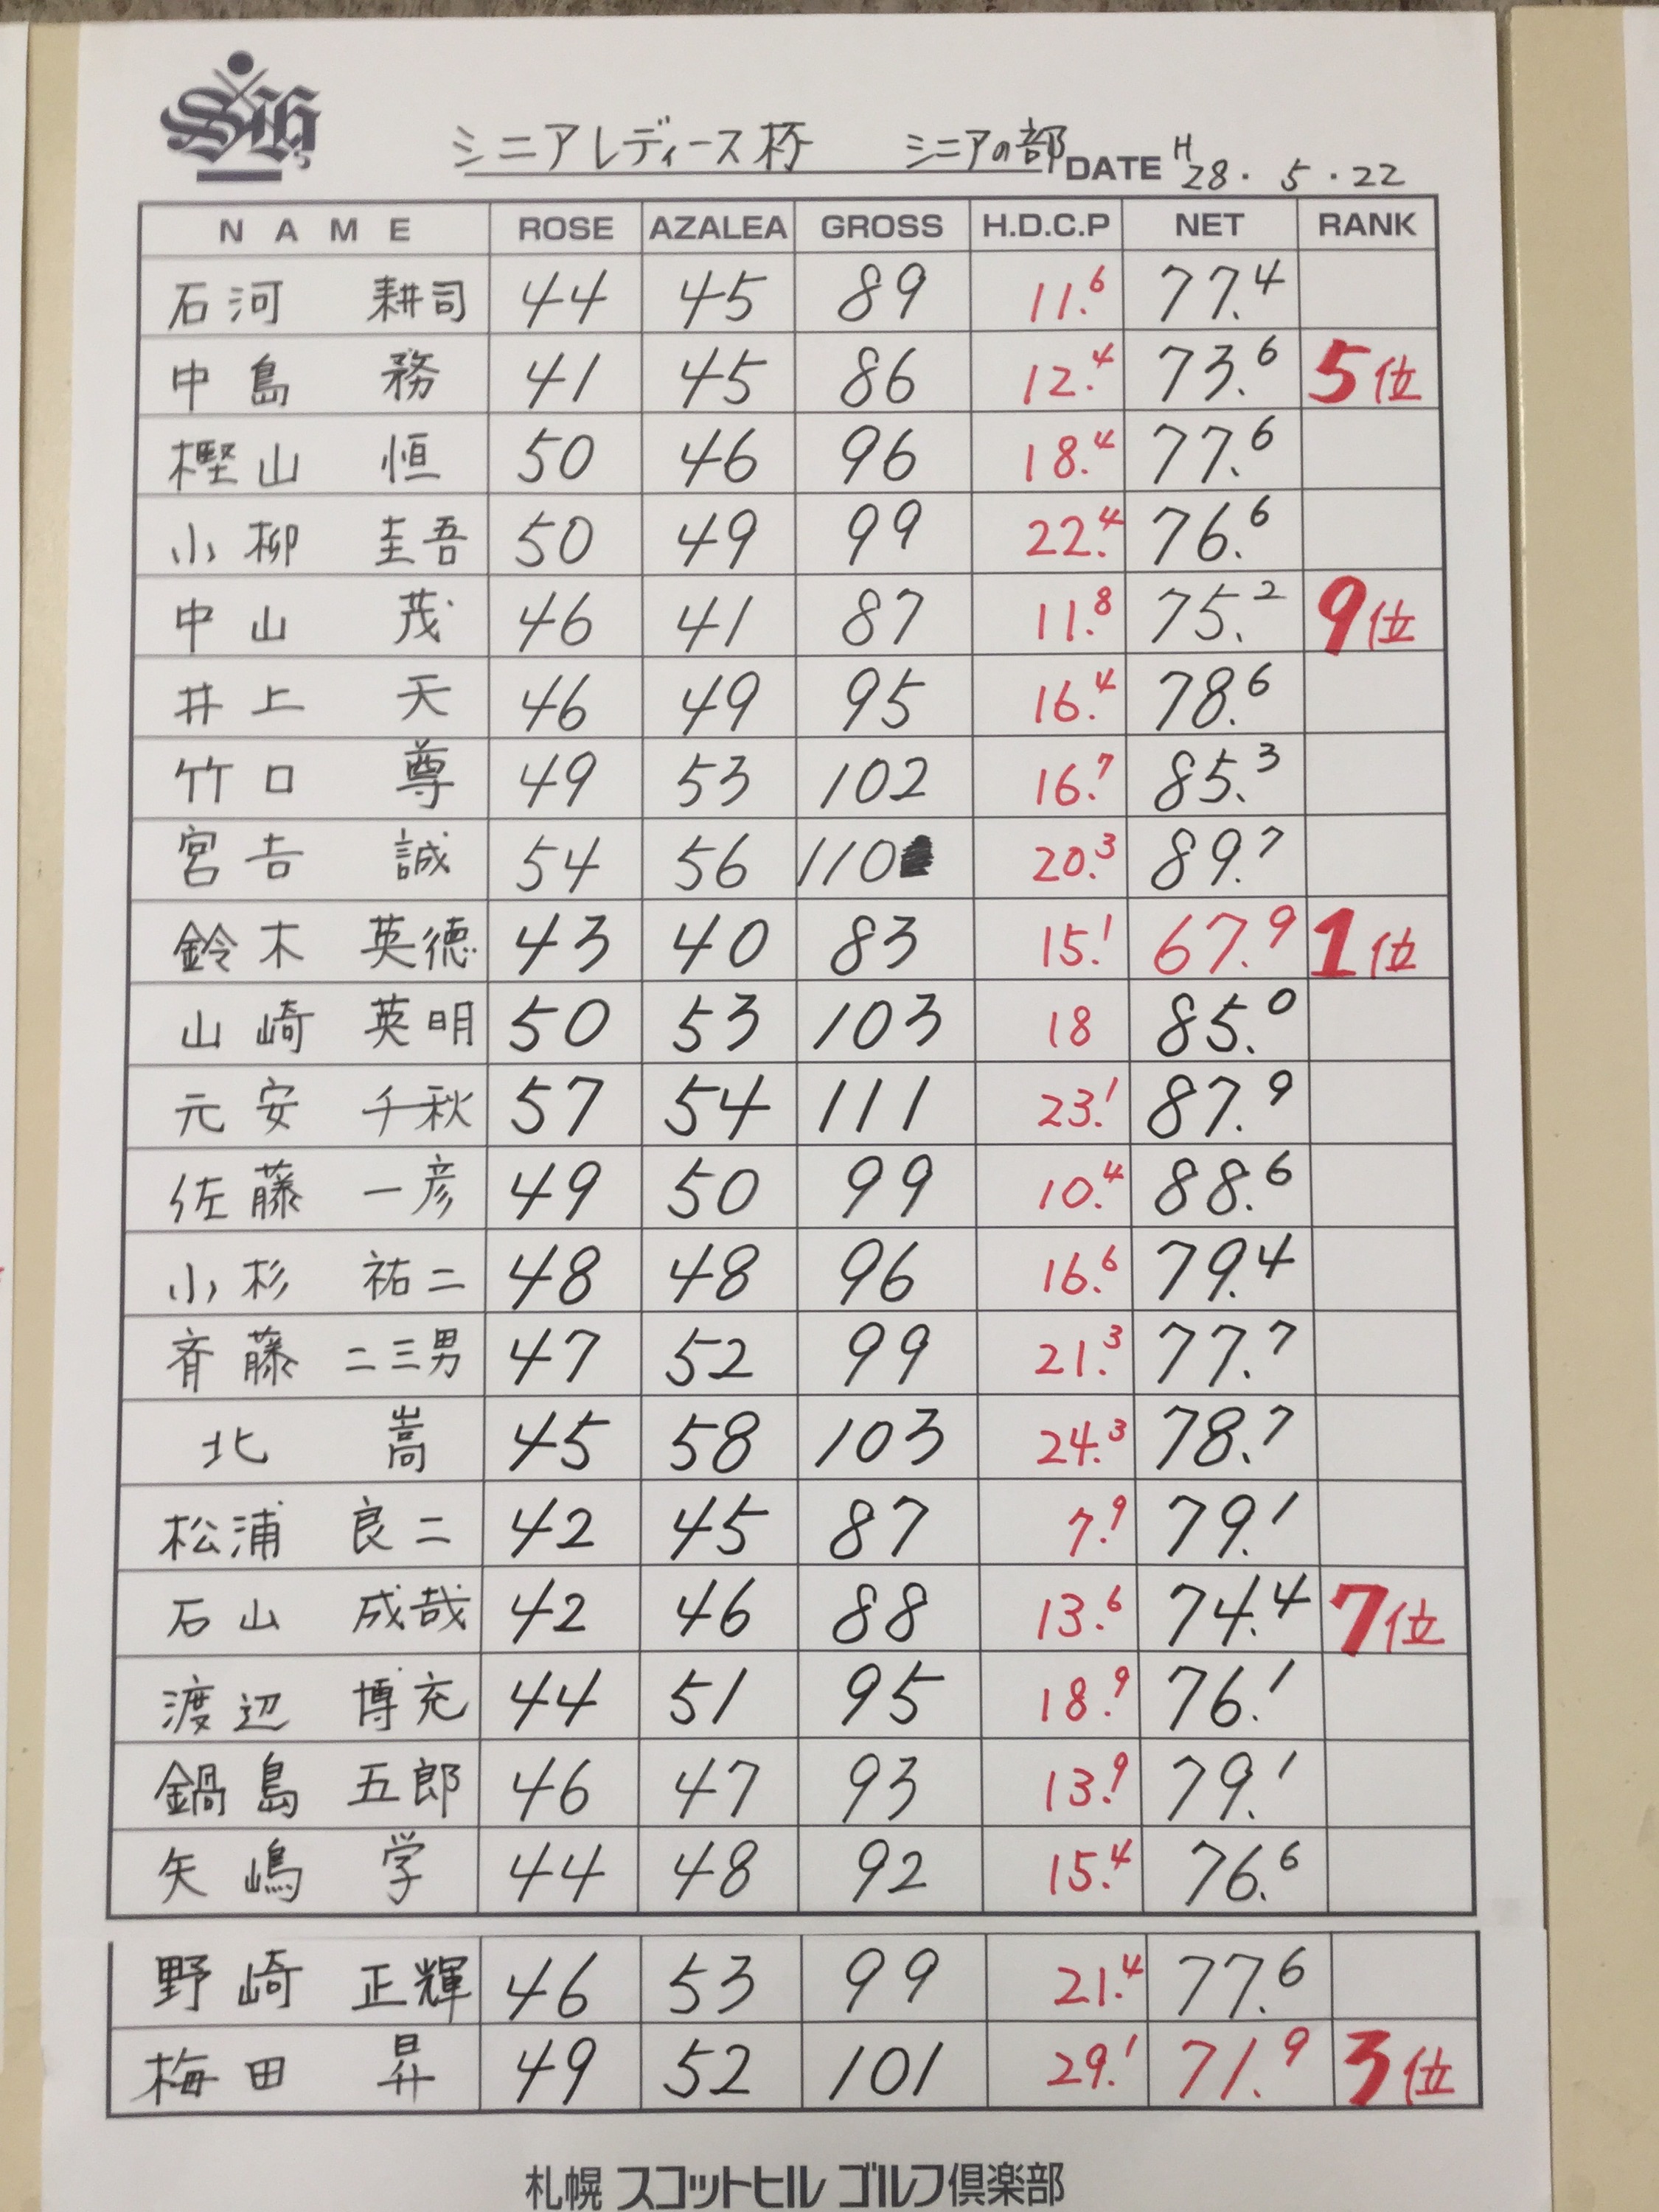 シニアレディース杯 シニアの部 DATE H28.5.22
NAME ROSE AZALEA GROSS H.D.C.P NET RANK
石河 耕司 44 45 89 11.6 77.4
中島 務 41 45 86 12.4 73.6 5位
樫山 恒 50 46 96 18.4 77.6
小柳 圭吾 50 49 99 22.4 76.6
中山 茂 46 41 87 11.8 75.2 9位
井上 天 46 49 95 16.4 78.6
竹口 尊 49 53 102 16.7 85.3
宮吉 誠 54 56 110 20.3 89.7
鈴木 英徳 43 40 83 15.1 67.9 1位
山崎 英明 50 53 103 18 85.0
元安 千秋 57 54 111 23.1 87.9
佐藤 一彦 49 50 99 10.4 88.6
小杉 祐二 48 48 96 16.6 79.4
斉藤 二三男 47 52 99 21.3 77.7
北 嵩 45 58 103 24.3 78.7
松浦 良二 42 45 87 7.9 79.1
石山 成哉 42 46 88 13.6 74.4 7位
渡辺 博充 44 51 95 18.9 76.1
鍋島 五郎 46 47 93 13.9 79.1
矢嶋 学 44 48 92 15.4 76.6
野崎 正輝 46 53 99 21.4 77.6
梅田 昇 49 52 101 29.1 71.9 3位
札幌 スコットヒル ゴルフ倶楽部